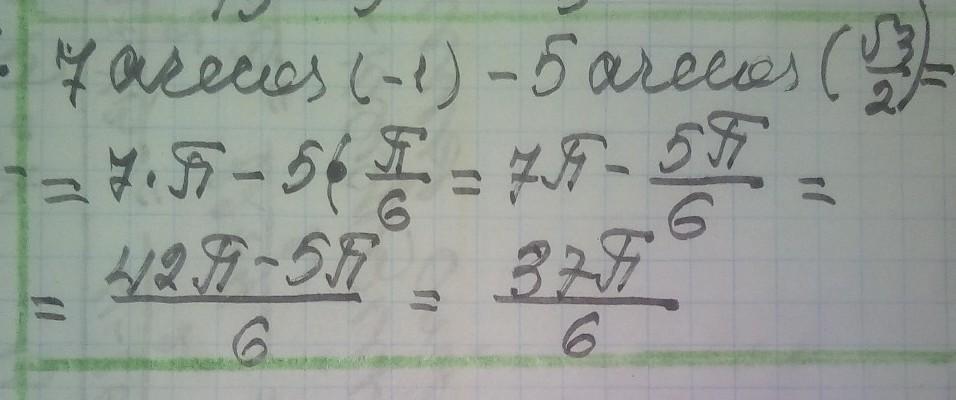 7 arccos (-1) - 5 arccos (√3/2) =
= 7·π - 5·π/6 = 7π - 5π/6 =
= (42π - 5π)/6 = 37π/6